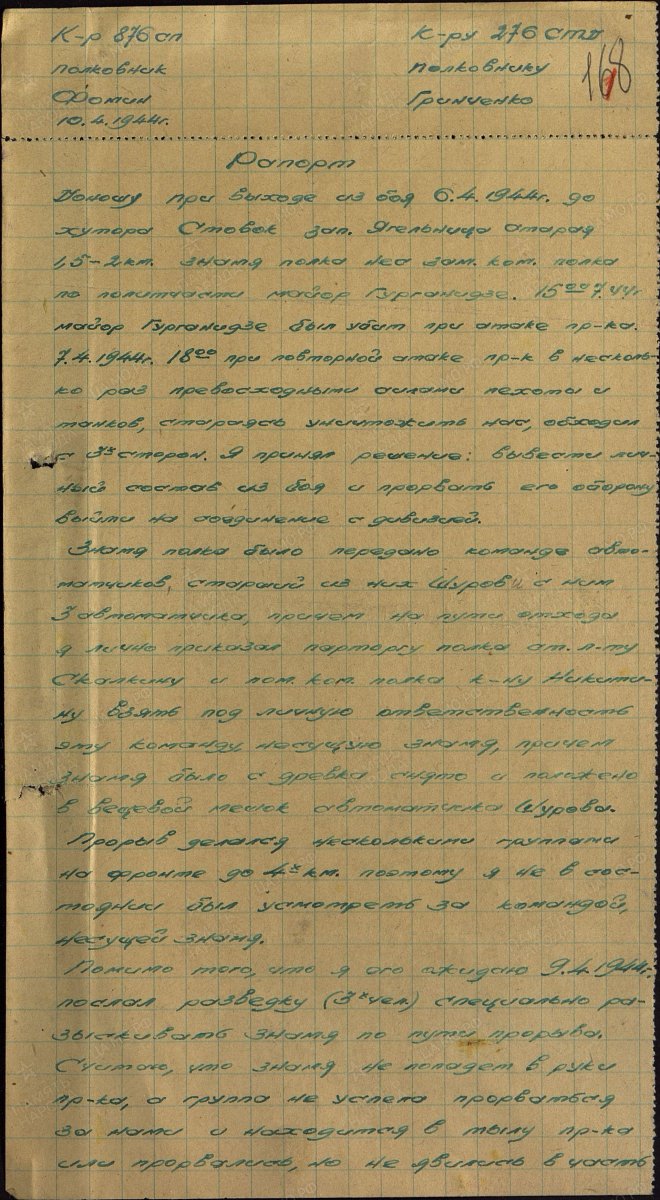 К-р 876 сп
К-ру 276 стд
168
полковник
полковнику
Фомин
Гринченко
10.4.1944г.
Рапорт
Доношу при выходе из боя 6.4.1944г. до
хутора Стовок зап. Ягельница старая
1,5-2 км. знамя полка нес зам. ком. полка
по политчасти майор Гурганидзе. 15⁰⁰ 7.4.44г
майор Гурганидзе был убит при атаке пр-ка.
7.4.1944г. 18⁰⁰ при повторной атаке пр-к в несколь-
ко раз превосходными силами пехоты и
танков, стараясь уничтожить нас, обходил
с 3х сторон. Я принял решение: вывести лич-
ный состав из боя и прорвать его оборону
выйти на соединение с дивизией.
Знамя полка было передано команде авто-
матчиков, старший из них Шуров и с ним
3 автоматчика, причем на пути отхода
я лично приказал парторгу полка ст. л-ту
Скалкину и пом. ком. полка к-ну Никити-
ну взять под личную ответственность
эту команду, несущую знамя, причем
знамя было с древка снято и положено
в вещевой мешок автоматчика Шурова.
Прорыв делался несколькими группами
на фронте до 4х км. поэтому я не в сос-
тоянии был усмотреть за командой,
несущей знамя.
Помимо того, что я его ожидаю 9.4.1944г.
послал разведку (3х чел.) специально ра-
зыскивать знамя по пути прорыва.
Считаю, что знамя не попадет в руки
пр-ка, а группа не успела прорваться
за нами и находится в тылу пр-ка
или прорвались, но не явились в часть